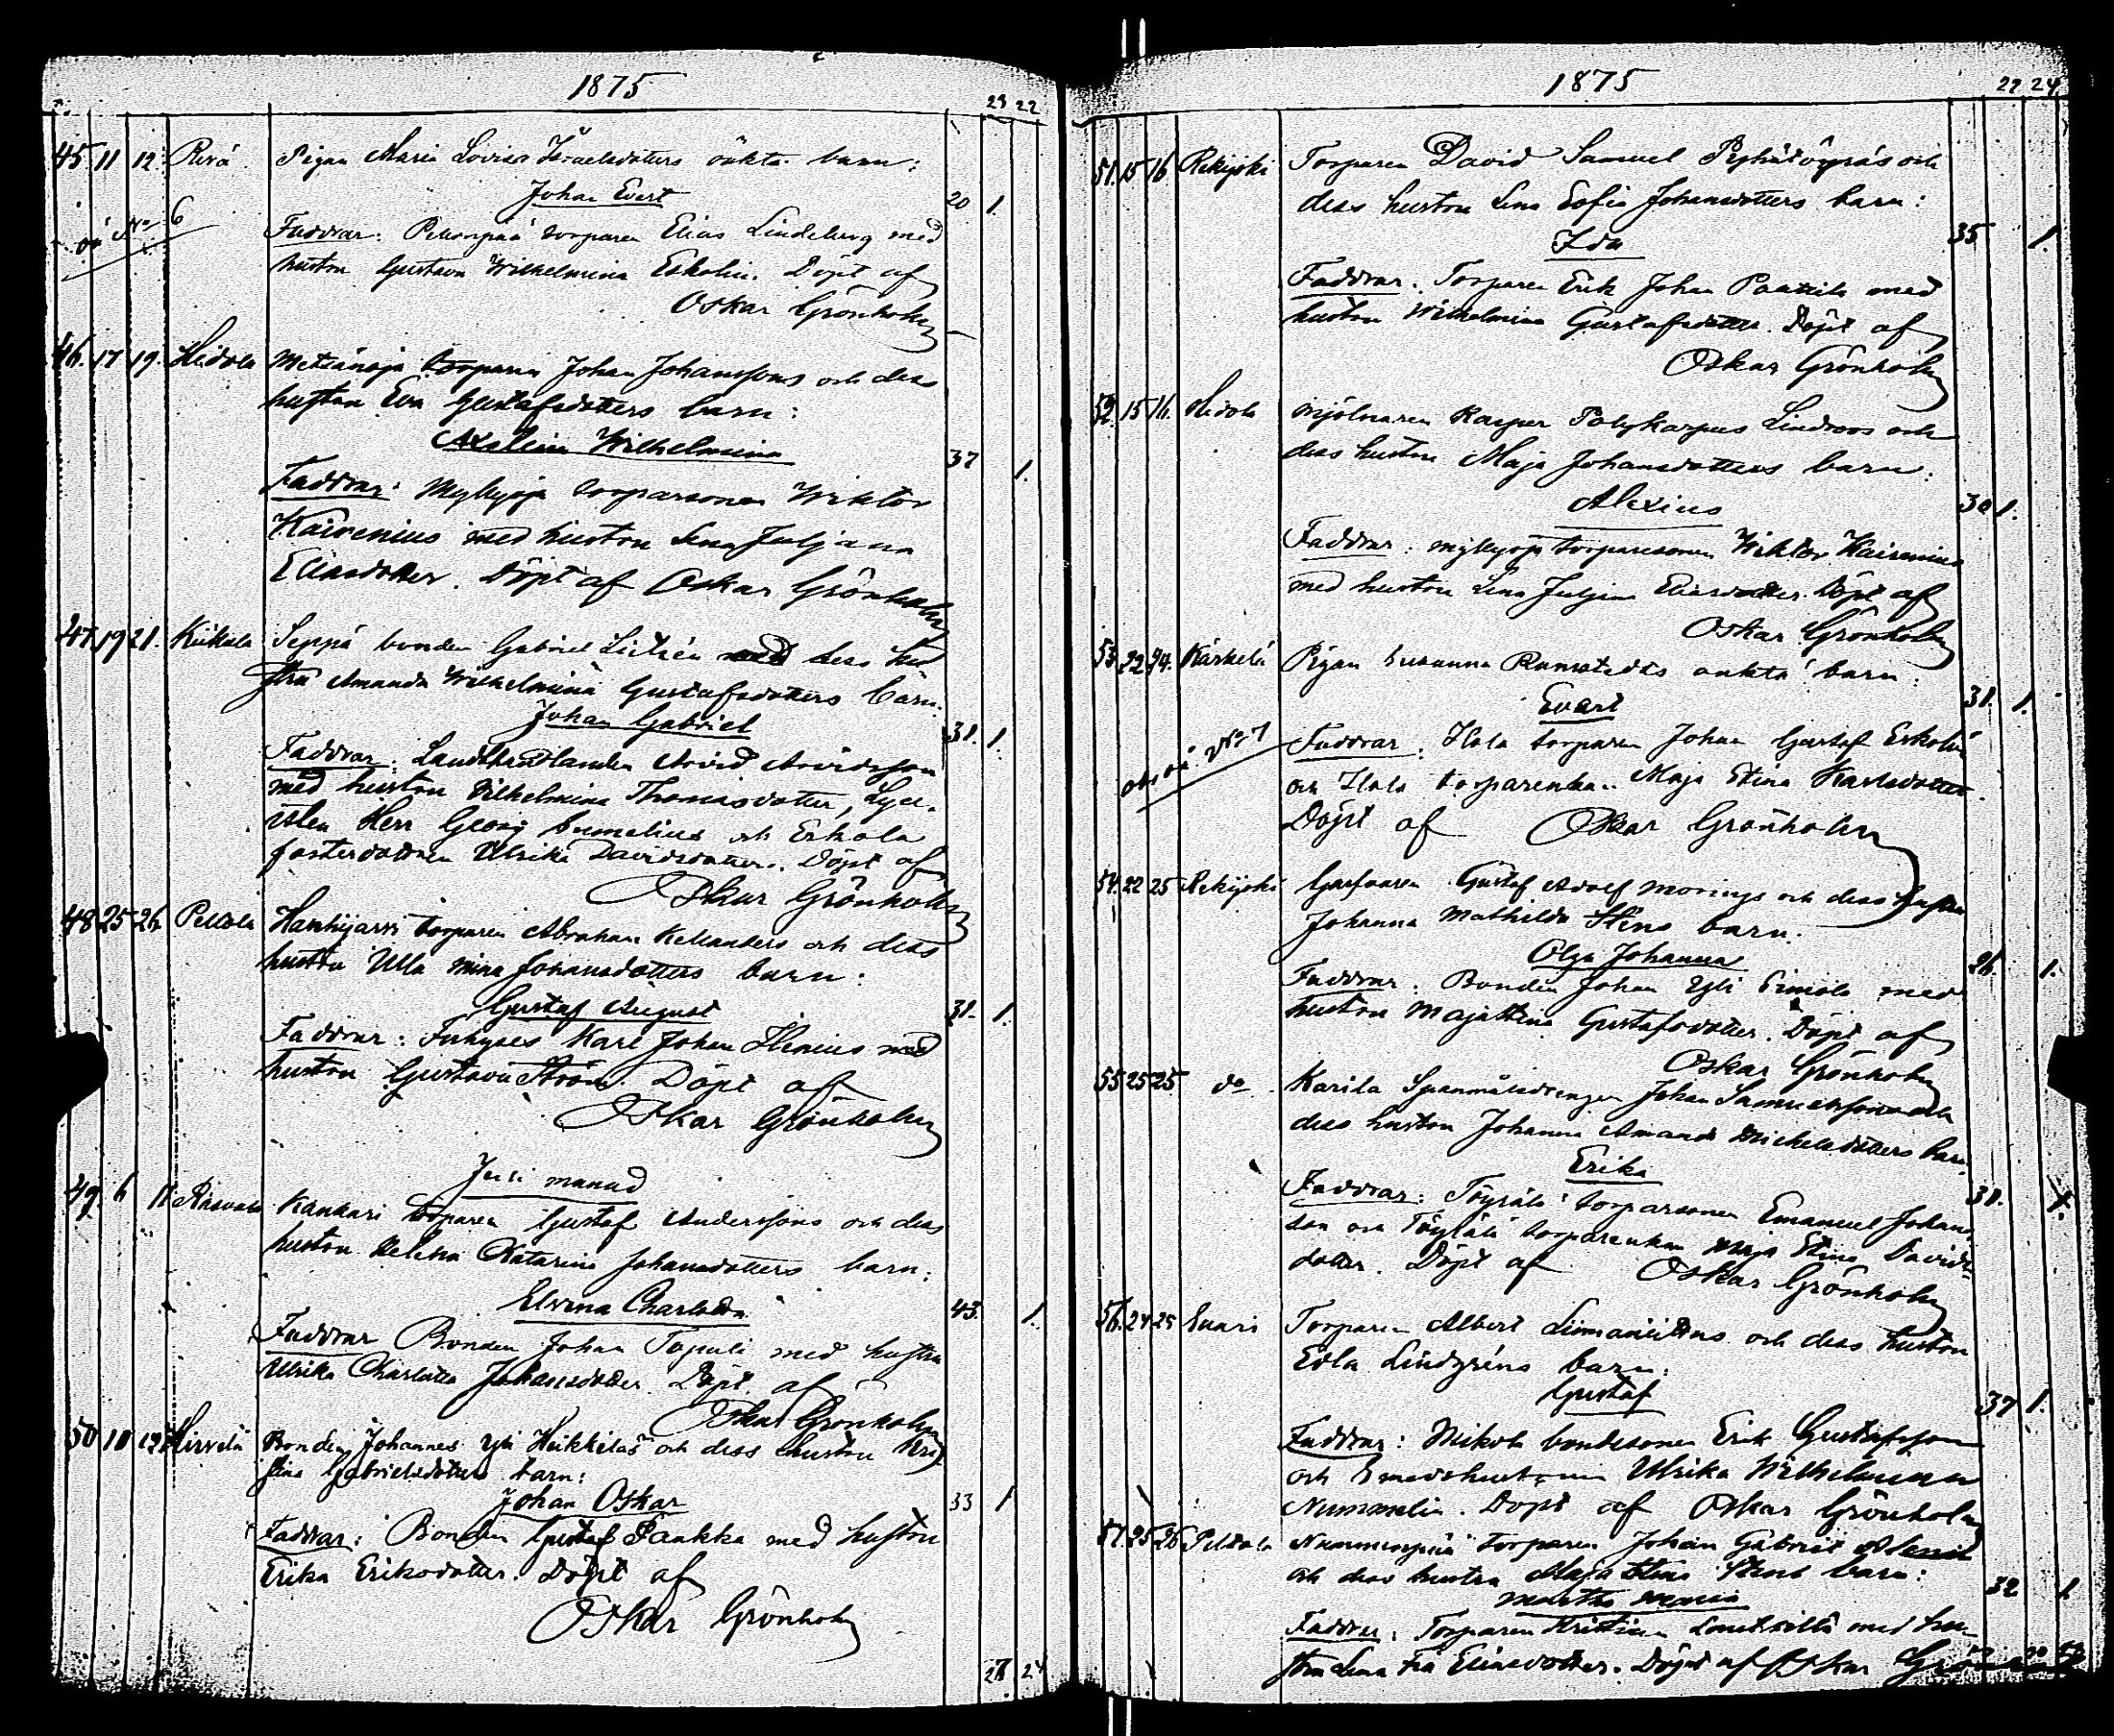 1875
23 22
45. 11 12. Rivä Pigan Maria Lovisa Israelsdotters oäkta barn:
Johan Evert 20 1.
oä No 6 Faddrar: torparen Elias Lindeberg med
hustru Gustava Wilhelmina Eskolin. Döpt af
Oskar Grönholm
46. 17 19. Hidola Metsänoja torparen Johan Johanssons och dess
hustru Eva Gustafsdotters barn:
Axelina Wilhelmina 37 1.
Faddrar: Myllyoja torparsonen Wiktor
Kairenius med hustru Lena Juljana
Eliasdotter. Döpt af Oskar Grönholm
47. 19 21. Kiikala Seppä bonden Gabriel med dess hu
stru Amanda Wilhelmina Gustafsdotters barn.
Johan Gabriel 31. 1.
Faddrar: Landthandlanden Arvid Arvidsson
med hustru Wilhelmina Thomasdotter, Lyce-
isten Herr Georg Cumelius och Eskola
fosterdottren Ulrika Davidsdotter. Döpt af
Oskar Grönholm
48 25 26 Peltola Hanhijarvi torparen Abraham Kellanders och dess
hustru Ulla Mina Johansdotters barn:
Gustaf August 31. 1.
Faddrar: Karl Johan Helenius med
hustru Gustava Ström. Döpt af
Oskar Grönholm
Juli månad
49. 6 11 Rasvala Kankari torparen Gustaf Anderssons och dess
hustru Helena Katarina Johansdotters barn:
Elvina Charlotta 43. 1.
Faddrar Bonden Johan Tapuli med hustru
Ulrika Charlotta Johansdotter. Döpt af
Oskar Grönholm
50 10 12 Hirvelä Bonden Johannes Yli Heikkilas och dess hustru Kri
stina Gabrielsdotters barn:
Johan Oskar 33 1
Faddrar: Bonden Gustaf Pankka med hustru
Erika Eriksdotter. Döpt af
Oskar Grönholm
27 24
1875
27 24
51. 15 16 Rekijoki Torparen David Samuel och
dess hustru Lena Sofia Johansdotters barn:
Ida 35 1.
Faddrar: Torparen Erik Johan med
hustru Wilhelmina Gustafsdotter. Döpt af
Oskar Grönholm
52. 15 16. Hidola Mjölnaren Kasper Polykarpus Lindroos och
dess hustru Maja Johansdotters barn:
Alexius 30 1.
Faddrar: Myllyoja torparesonen Wiktor Kairenius
med hustru Lena Juljana Eliasdotter. Döpt af
Oskar Grönholm
53. 22 24. Kärkelä Pigan Susanna Ramstedts oäkta barn:
Evert 31. 1.
oä No 7 Faddrar: Hala torparen Johan Gustaf Eskolin
och Hala torparenkan Maja Stina Karlsdotter.
Döpt af Oskar Grönholm
54. 22 25 Rekijoki Garfvaren Gustaf Adolf Morings och dess hustru
Johanna Mathilda Stens barn:
Olga Johanna 26. 1.
Faddrar: Bonden Johan Yli Simola med
hustru Maja Stina Gustafsdotter. Döpt af
Oskar Grönholm
55 25 25 do Karila Spanmålsdrengen Johan Samuelssons och
dess hustru Johanna Amanda Michelsdotters barn.
Erika 31. 1.
Faddrar: Töyrälä torparsonen Emanuel Johans
son och Töyrälä torparenkan Maja Stina Davids-
dotter. Döpt af Oskar Grönholm
56. 24 25 Suari Torparen Albert och dess hustru
Edla Lindgréns barn:
Gustaf 37 1.
Faddrar: Mikola bondesonen Erik Gustafsson
och Smedshustrun Ulrika Wilhelmina
Nummelin. Döpt af Oskar Grönholm
57. 25 26 Peltola Nummenpää torparen Johan Gabriel
och dess hustru Maja Stina barn:
Martha Maria 32 1
Faddrar: Torparen Kristian med hu-
stru Lena Eliasdotter. Döpt af Oskar